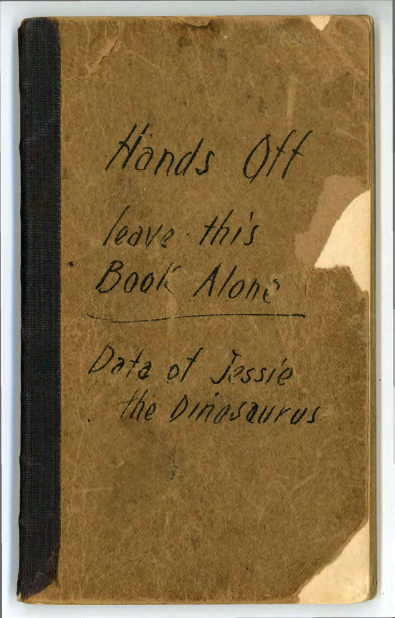 Hands Off
leave this
Book Alone
Data of Jessie
the Dinosaurus